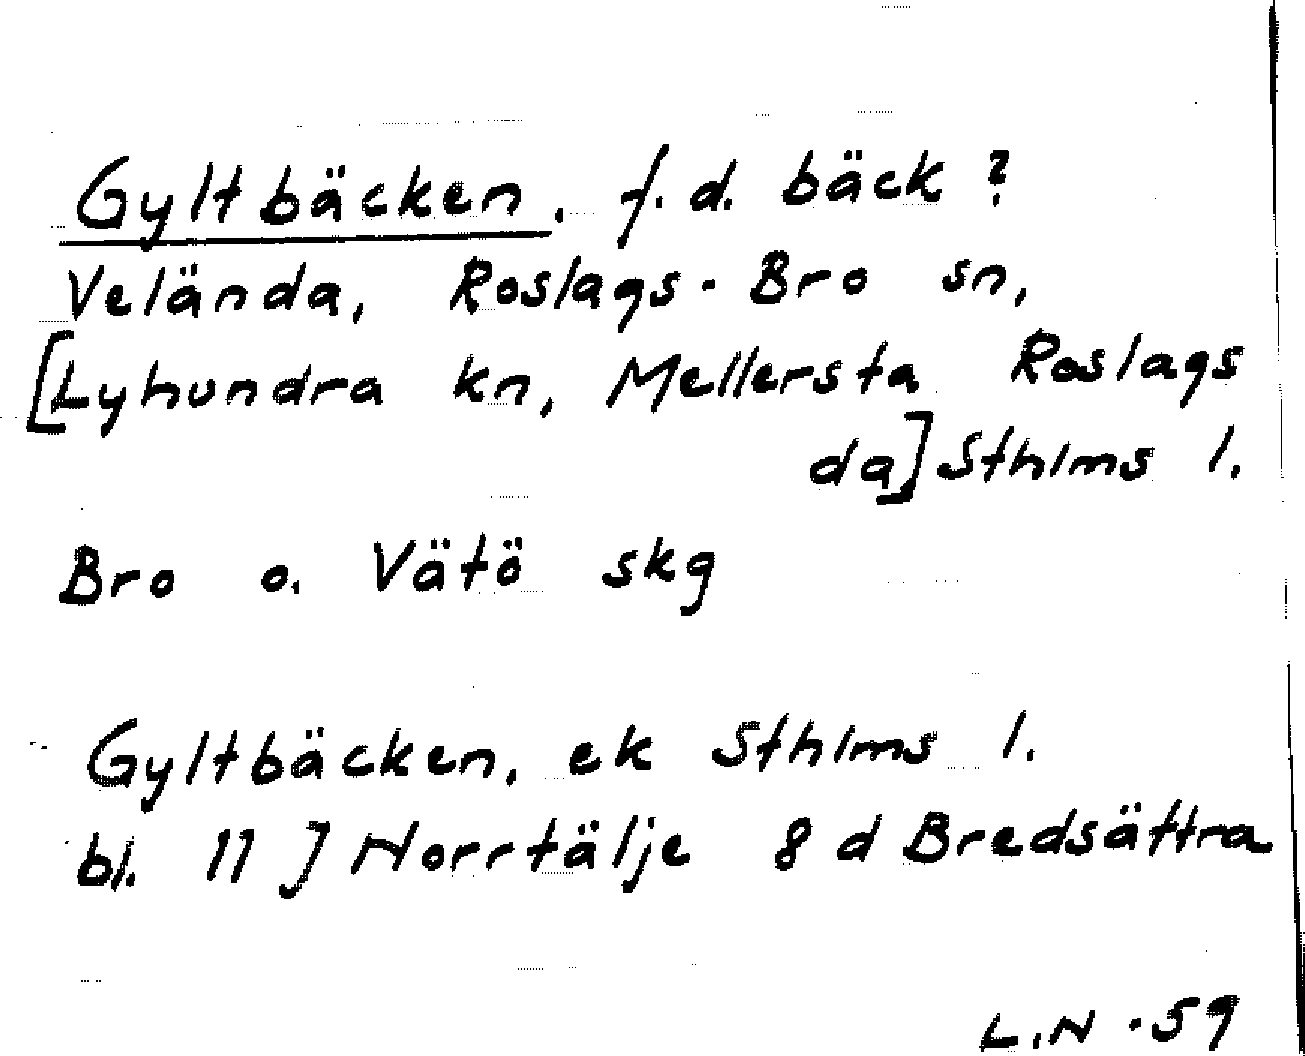 Gyltbäcken, f.d. bäck ?
Velända, Roslags-Bro sn,
[Lyhundra kn, Mellersta Roslags
da] Sthlms l.
Bro o. Vätö skg
Gyltbäcken, ek Sthlms l.
bl. 11 J Norrtälje 8 d Bredsättra
L.N -59